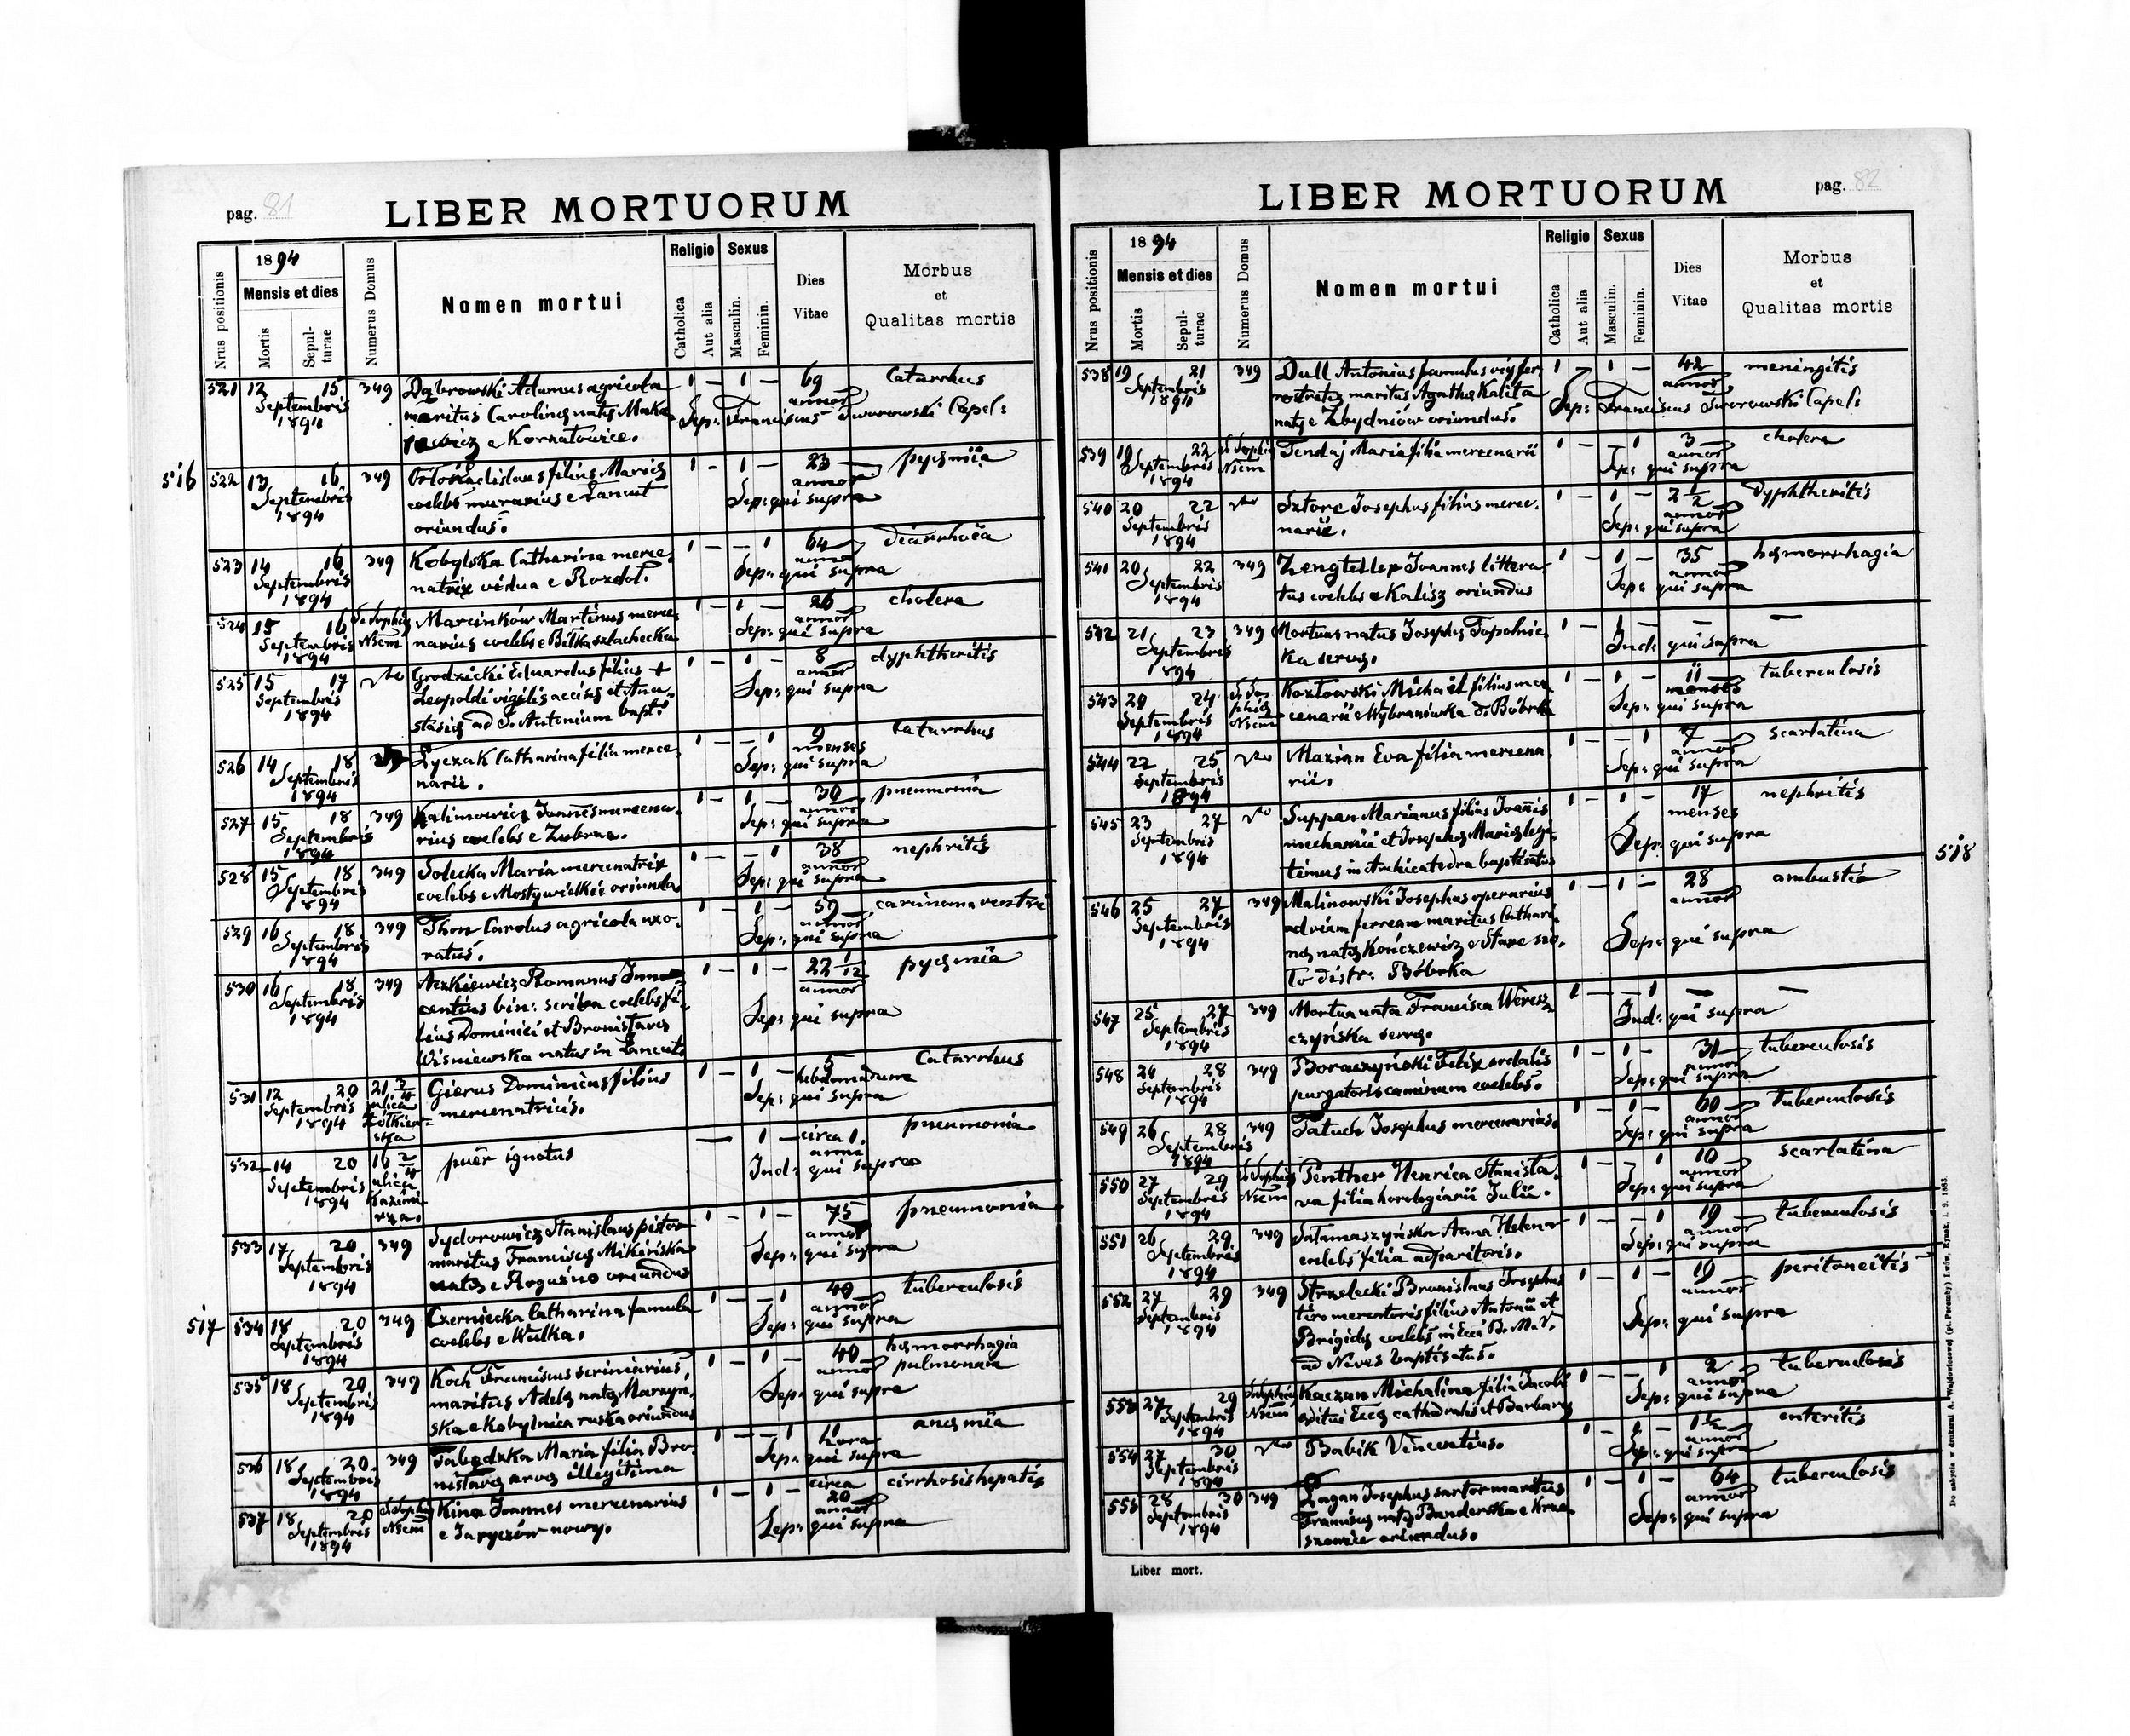 pag. 81
LIBER MORTUORUM
Nrus positionis
1894
Mensis et dies
Mortis
Sepulturae
Numerus Domus
Nomen mortui
Religio
Catholica
Aut alia
Sexus
Masculin.
Feminin.
Dies
Vitae
Morbus
et
Qualitas mortis
521 12 15 349 Dąbrowski Adamus agricola 1 — 1 — 69 Catarrhus
Septembris maritus Carolinę natę annor
1894 e Kornatowice. Sep: Franciscus Tworowski Capel:
516
522 13 16 349 filius Marię 1 — 1 — 23 pyęmia
Septembris coelebs murarius e Łańcut annor
1894 oriundus. Sep: qui supra
523 14 16 349 Kobylska Catharina merce 1 — — 1 64 diarrhoëa
Septembris natrix vidua e Rozdoł. annor
1894 Sep: qui supra
524 15 16 S. Sophię Nsem Marcinków Martinus merce 1 — 1 — 26 cholera
Septembris narius coelebs e Biłka szlachecka annor
1894 Sep: qui supra
525 15 17 Grodzicki Eduardus filius + 1 — 1 — 8 dyphtheritis
Septembris Leopoldi vigilis accisę et Ana annor
1894 stasię ad S. Antonium bapt: Sep: qui supra
526 14 18 Łyczak Catharina filia merce 1 — — 1 9 catarrhus
Septembris narii. menses
1894 Sep: qui supra
527 15 18 349 Kalinowicz Joannes mercena 1 — 1 — 30 pneumonia
Septembris rius coelebs e Zubrza. annor
1894 Sep: qui supra
528 15 18 349 Solecka Maria mercenatrix 1 — — 1 38 nephritis
Septembris coelebs e Mosty wielkie oriunda annor
1894 Sep: qui supra
529 16 18 349 Thon Carolus agricola uxo 1 — 1 — 59 carcinoma ventri
Septembris ratus. annor
1894 Sep: qui supra
530 16 18 349 Romanus Inno 1 — 1 — 22 1/12 pyęmia
Septembris centius bin: scriba coelebs fi annor
1894 lius Dominici et Bronisławę Sep: qui supra
Wiśniewska natus in Łańcut
531 12 20 21 3/4 ulica Żółkiewska Gierus Dominicus filius 1 — 1 — 5 Catarrhus
Septembris mercenatricis. hebdomadum
1894 Sep: qui supra
532 14 20 16 2/4 ulica Kazimirza. puer ignotus — 1 — circa 1. pneumonia
Septembris anni
1894 Ind: qui supra
533 17 20 349 Sydorowicz Stanislaus pistor 1 — 1 — 75 pneumonia
Septembris maritus Franciscę Mikińska annor
1894 natę e Roguźno oriundus Sep: qui supra
517
534 18 20 349 Czerniecka Catharina famula 1 — — 1 40 tuberculosis
Septembris coelebs e Wulka. annor
1894 Sep: qui supra
535 18 20 349 Koch Franciscus scriniarius 1 — 1 — 40 hęmorrhagia
Septembris maritus Adelę natę Marzyń annor pulmonum
1894 ska e Kobylnica ruska oriundus Sep: qui supra
536 18 20 349 Maria filia Bro 1 — — 1 1 anęmia
Septembris nisławę illegitima hora
1894 Sep: qui supra
537 18 20 S. Sophię Nsem Kina Joannes mercenarius 1 — 1 — circa 20 cirrhosis hepatis
Septembris e Jaryczów nowy. annor
1894 Sep: qui supra
pag. 82
LIBER MORTUORUM
Nrus positionis
1894
Mensis et dies
Mortis
Sepulturae
Numerus Domus
Nomen mortui
Religio
Catholica
Aut alia
Sexus
Masculin.
Feminin.
Dies
Vitae
Morbus
et
Qualitas mortis
538 19 21 349 Dull Antonius famulus 1 — 1 — 42 meningitis
Septembris maritus Agathę Kalita annor
1894 natę e Zbydniów oriundus. Sep: Franciscus Tworowski Capel:
539 19 22 S. Sophię Nsem Tendaj Maria filia mercenarii 1 — — 1 3 cholera
Septembris annor
1894 Sep: qui supra
540 20 22 Sztorc Josephus filius merce 1 — 1 — 2 1/2 dyphtheritis
Septembris narii. annor
1894 Sep: qui supra
541 20 22 349 Zengteller Joannes littera 1 — 1 — 35 hęmorrhagia
Septembris tus coelebs e Kalisz oriundus annor
1894 Sep: qui supra
542 21 23 349 Mortuus natus Josephę Topolnic 1 — 1 — — —
Septembris ka servę. Ind: qui supra
1894
543 20 24 S. Sophię Nsem Kozłowski Michaël filius mer 1 — 1 — 11 tuberculosis
Septembris cenarii e Wybranówka d. Bóbrka menses
1894 Sep: qui supra
544 22 25 Mazian Eva filia mercena 1 — — 1 7 scarlatina
Septembris rii. annor
1894 Sep: qui supra
545 23 27 Suppan Marianus filius Joannis 1 — 1 — 17 nephritis
Septembris mechanici et Josephę Marię legi menses
1894 timus in Archicatedra baptisatus Sep: qui supra
518
546 25 27 349 Malinowski Josephus operarius 1 — 1 — 28 ambustio
Septembris ad viam ferream maritus Cathari annor
1894 nę natę Kończewicz e Stare sio Sep: qui supra
ło distr: Bóbrka
547 25 27 349 Mortua nata Francisca Weresz 1 — — 1 — —
Septembris czyńska servę. Ind: qui supra
1894
548 24 28 349 Boraczyński Felix sodalis 1 — 1 — 31 tuberculosis
Septembris purgatoris caminum coelebs. annor
1894 Sep: qui supra
549 26 28 349 Tatuch Josephus mercenarius. 1 — 1 — 60 tuberculosis
Septembris annor
1894 Sep: qui supra
550 27 29 S. Sophię Nsem Penther Henrica Stanisła 1 — — 1 10 scarlatina
Septembris va filia horologiarii Julii. annor
1894 Sep: qui supra
551 26 29 349 Anna Helena 1 — — 1 19 tuberculosis
Septembris coelebs filia adparitoris. annor
1894 Sep: qui supra
552 27 29 349 Strzelecki Bronislaus Josephus 1 — 1 — 19 peritoneitis
Septembris tiro mercatoris filius Antonii et annor
1894 Brigidę coelebs in Eccl. B. M. V. Sep: qui supra
ad Nives baptisatus.
553 27 29 S. Sophię Nsem Kaczan Michalina filia Jacobi 1 — — 1 2 tuberculosis
Septembris aeditui Eccę cathedralis et Barbarę annor
1894 Sep: qui supra
554 27 30 Babik Vincentius. 1 — 1 — 1 1/2 enteritis
Septembris annor
1894 Sep: qui supra
555 28 30 349 Łagan Josephus sartor maritus 1 — 1 — 64 tuberculosis
Septembris Franciscę natę Banderska e annor
1894 oriundus. Sep: qui supra
Liber mort.